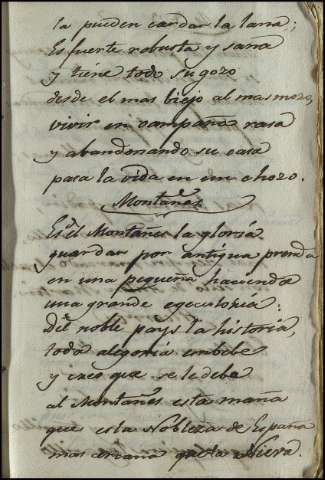 la pueden cardar la lana;
Es fuerte robusta y sana
y tiene todo su gozo
desde el mas biejo al mas mozo,
vivir en campaña rasa
y abandonando su casa
pasa la vida en un chozo.
Montañes
Es el Montañes la gloria
guardar por antigua prenda
en una pequeña hacienda
una grande egecutoria:
del noble pays la historia,
toda alegoria embebe
y creo que se le debe
al Montañes esta maña
que es la Nobleza de España
mas arcana que la Nieve.